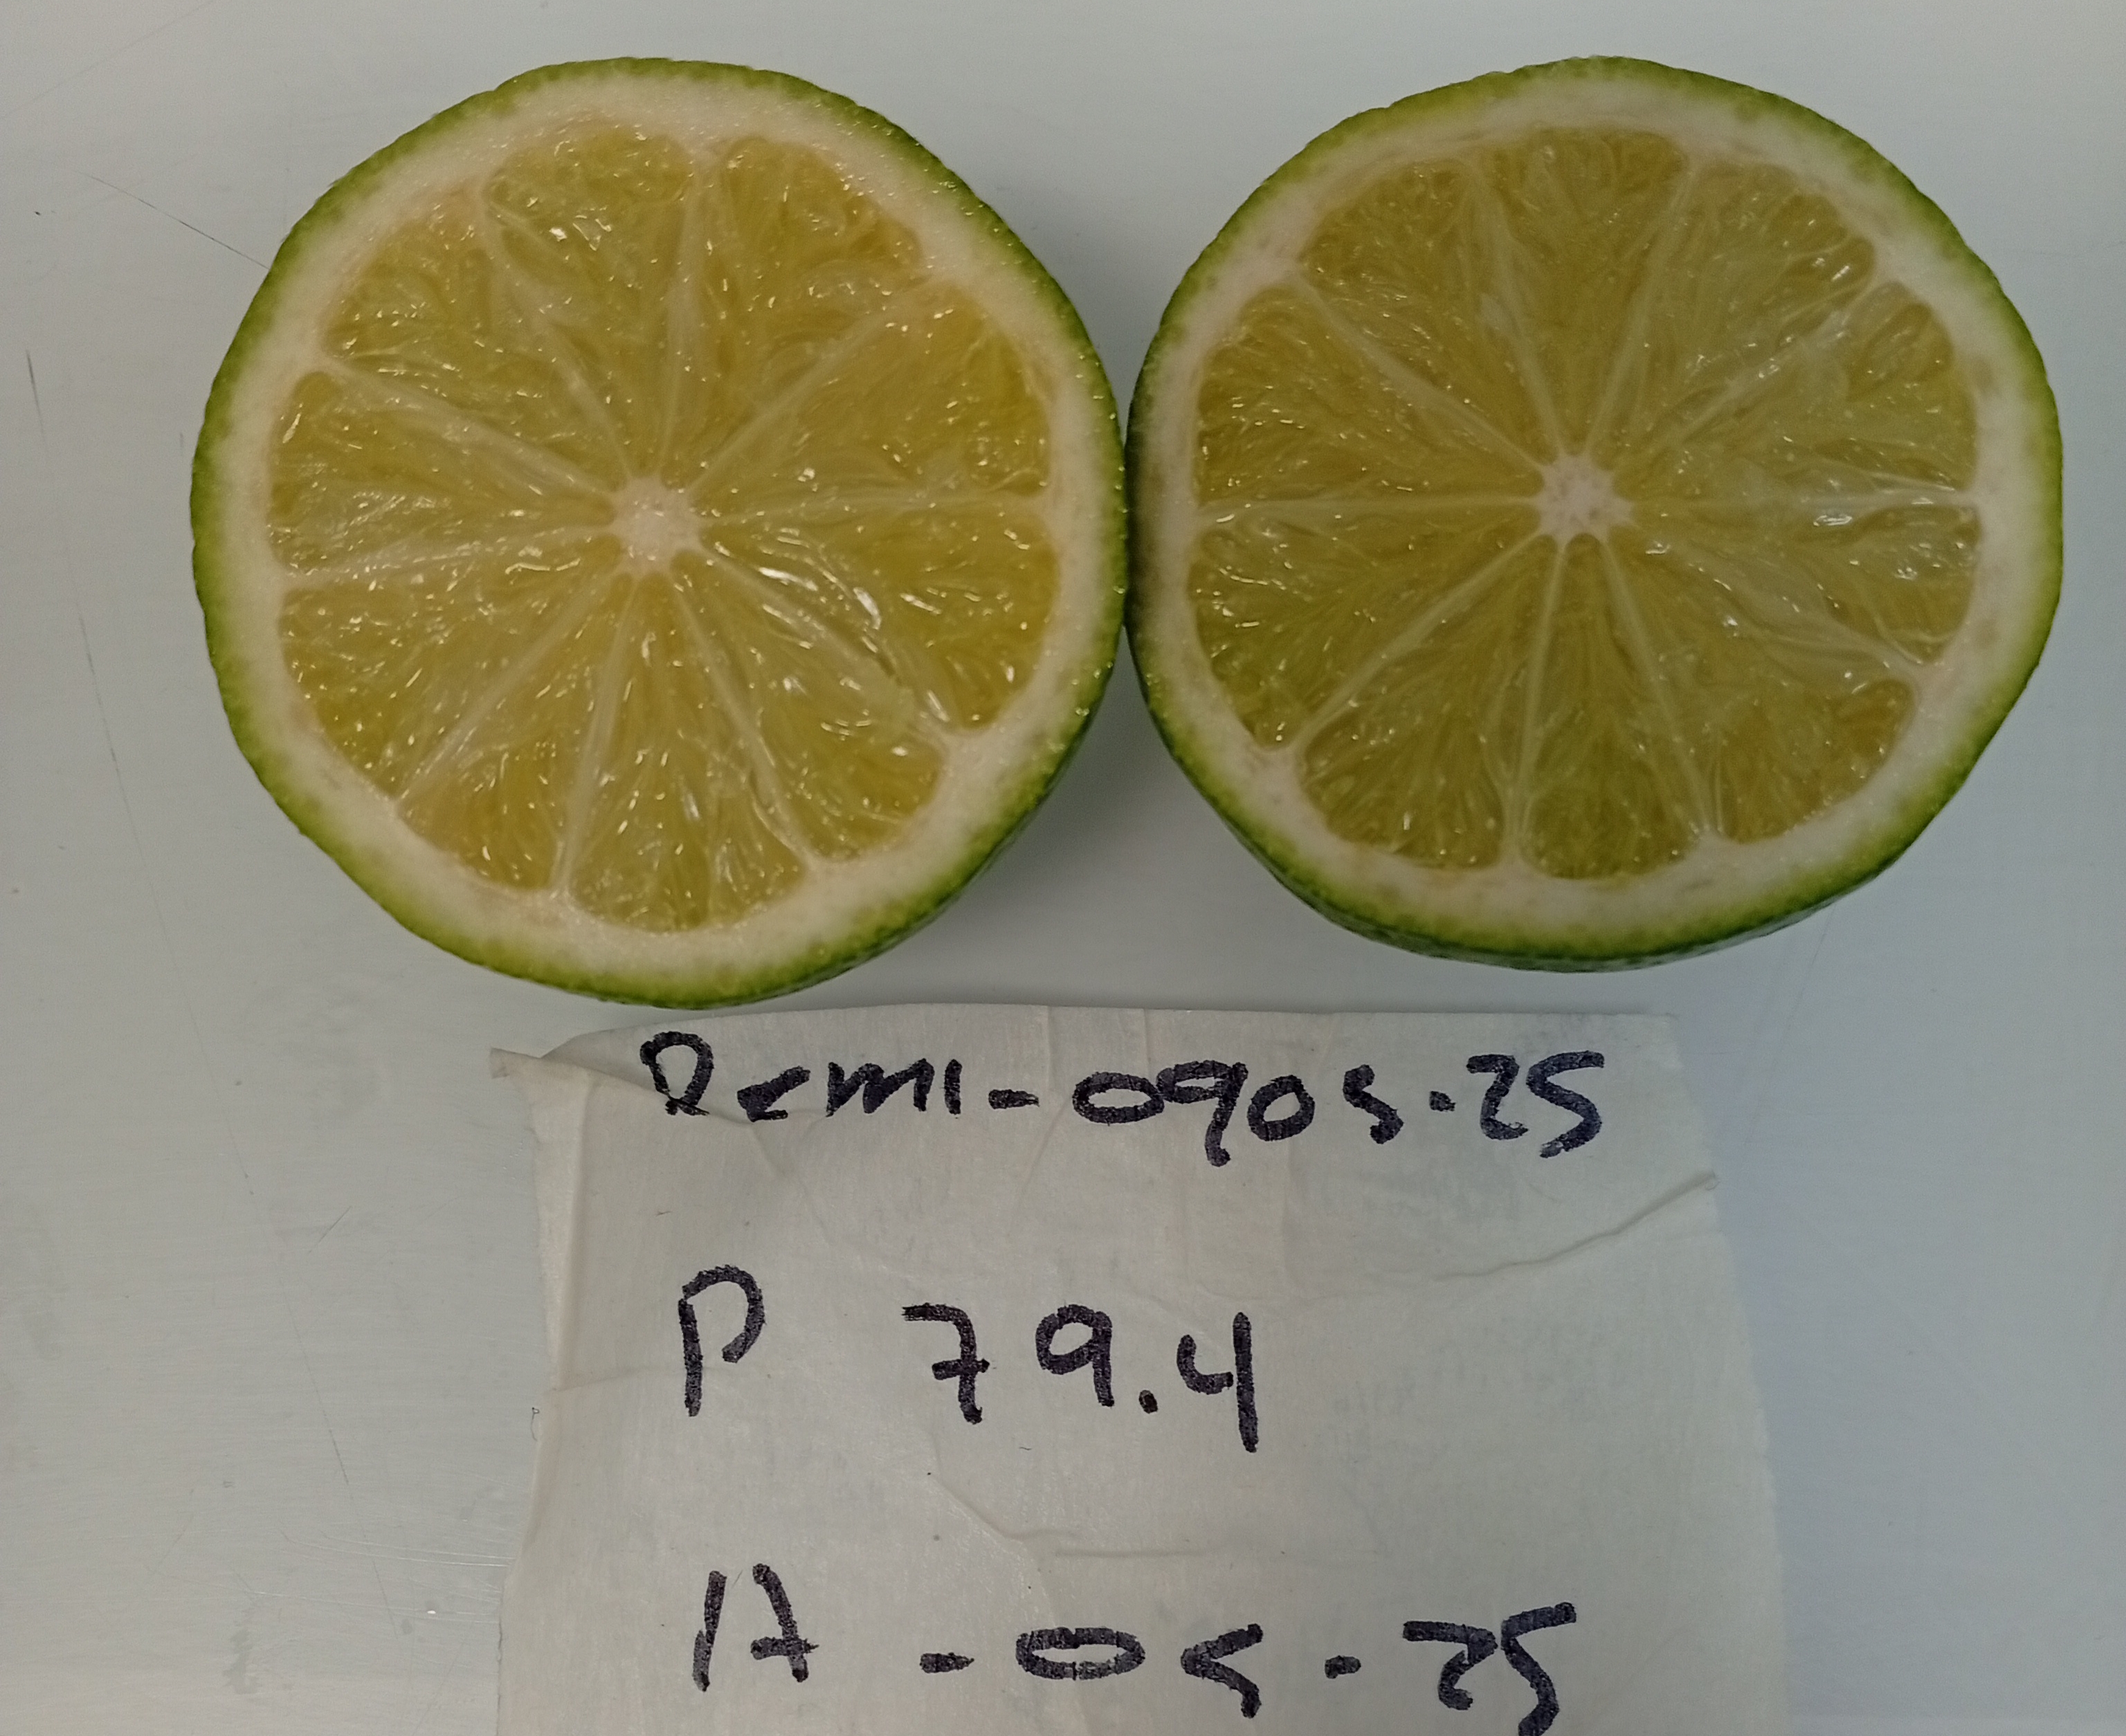 Remi-0905.25
P 79.4
A -05.25